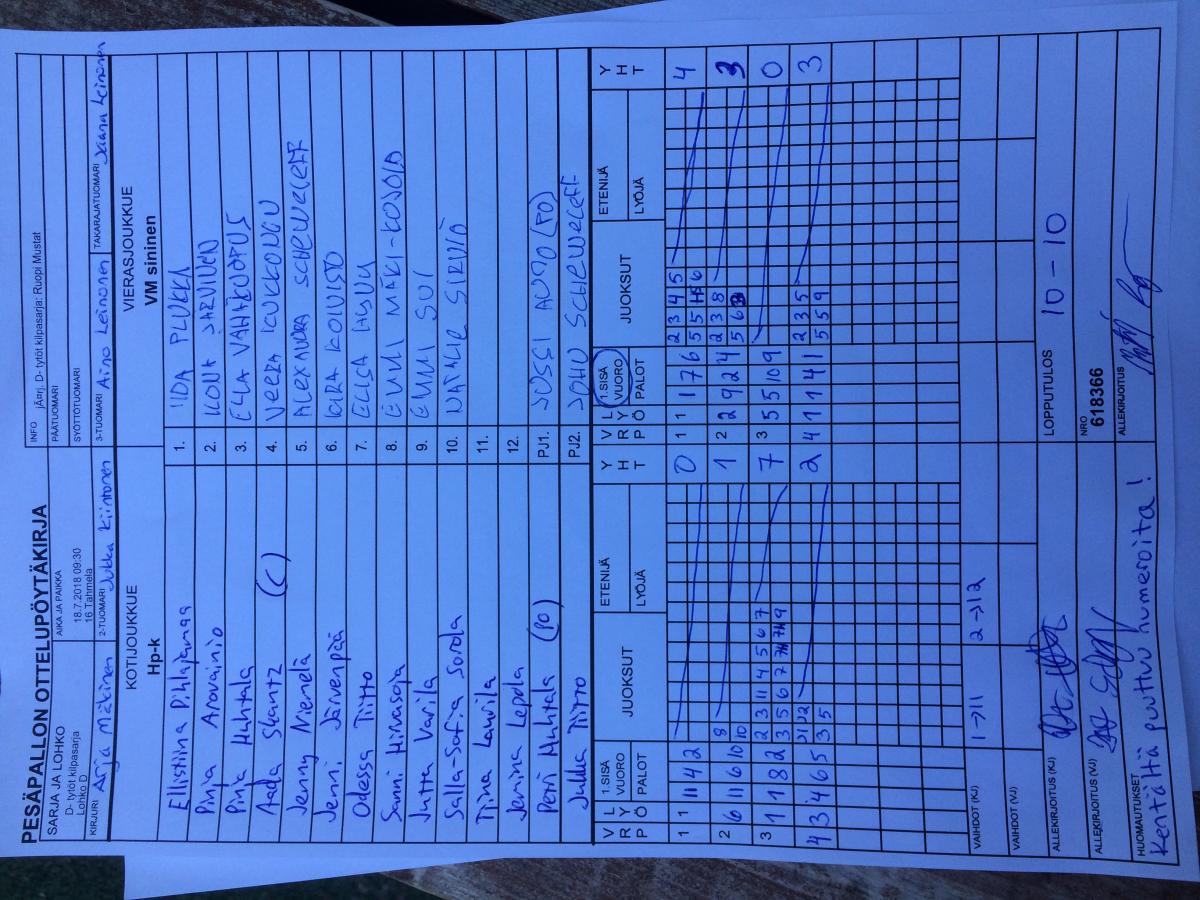 PESÄPALLON OTTELUPÖYTÄKIRJA
SARJA JA LOHKO
D- tytöt kilpasarja
Lohko D
AIKA JA PAIKKA
18.7.2018 09:30
16 Tahmela
INFO
jÃ¤rj. D- tytöt kilpasarja: Ruopi Mustat
PÄÄTUOMARI
SYÖTTÖTUOMARI
KIRJURI Arja Mäkinen
2-TUOMARI Jukka Kiintonen
3-TUOMARI Aino Leinonen
TAKARAJATUOMARI Jaana Leinonen
KOTIJOUKKUE
Hp-k
VIERASJOUKKUE
VM sininen
Ellistiina Pihlajamaa 1. IIDA PLUKKA
Pinja Arovainio 2. ILONA JÄRVINEN
Pinja Huhtala 3. ELLA VÄHÄKUOPUS
Aada Skantz (C) 4. VEERA KUKKONEN
Jenny Niemelä 5. ALEXANDRA SCHEWELEFF
Jenni Järvenpää 6. KIRA KOIVISTO
Odessa Tiitto 7. ELISA
Sanni Hirvasoja 8. EMMI MÄKI-KOJOLA
Jutta Varila 9. EMMI SUI
Salla-Sofia Sorola 10. NATALIE SIRVIÖ
Tiina Laurila 11.
Jemina Lepola 12.
Petri Huhtala (PO) PJ1. JUSSI AUNO (PO)
Jukka Tiitto PJ2. JOHN SCHEWELEFF
V R P L Y Ö 1.SISÄ VUORO PALOT JUOKSUT ETENIJÄ LYÖJÄ Y H T V R P L Y Ö 1.SISÄ VUORO PALOT JUOKSUT ETENIJÄ LYÖJÄ Y H T
1 1 11 4 2 0 1 1 1 7 6 2 3 4 5 4
5 5
2 6 11 6 10 8 1 2 2 9 2 4 2 3 8 3
10 5 6
3 1 1 8 2 2 3 11 4 5 6 7 7 3 5 5 10 9 0
3 5 6 7 9
4 3 4 6 5 2 4 11 1 4 1 2 3 5 3
3 5 5 5 9
VAIHDOT (KJ) 1→11 2→12
VAIHDOT (VJ)
ALLEKIRJOITUS (KJ)
LOPPUTULOS 10 - 10
ALLEKIRJOITUS (VJ)
NRO
618366
HUOMAUTUKSET
Kentältä puuttuu numeroita!
ALLEKIRJOITUS